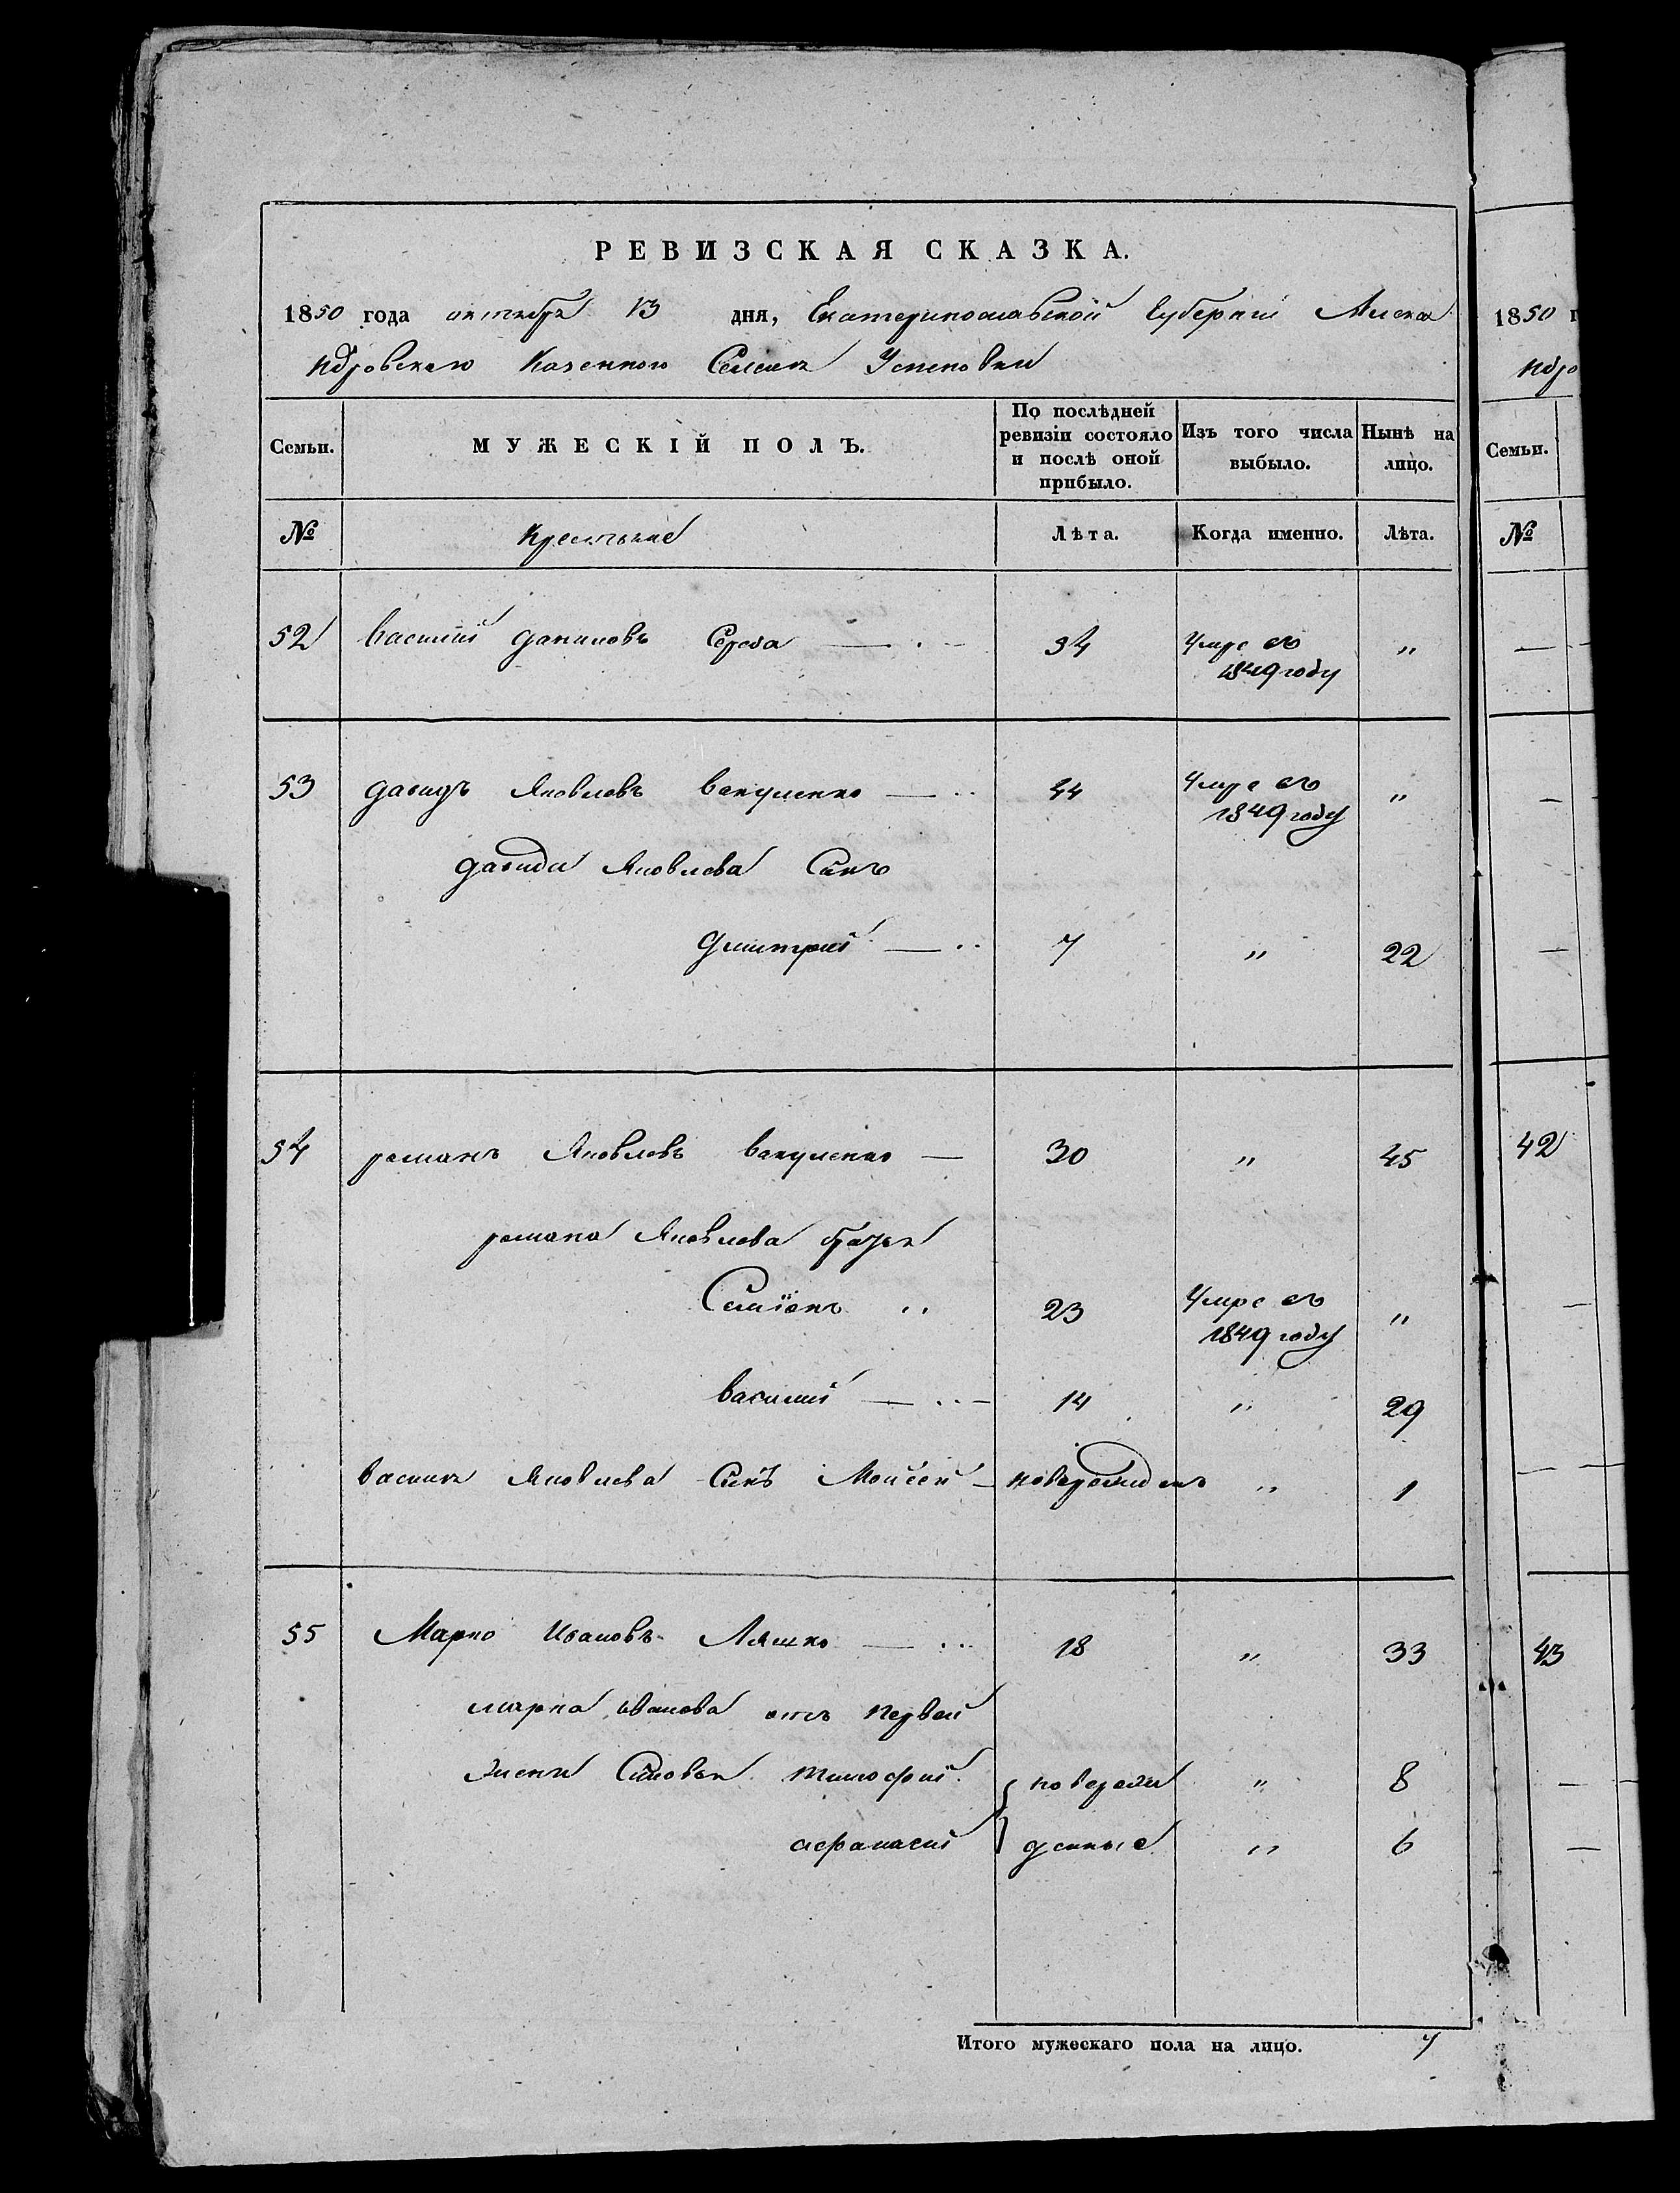 РЕВИЗСКАЯ СКАЗКА.
1850 года октября 13 дня, Екатеринославской Губернии Алекса
ндровского Казенного Селения Успеновки
Семьи. МУЖЕСКІЙ ПОЛЪ. По послѣдней ревизіи состояло и послѣ оной прибыло. Изъ того числа выбыло. Нынѣ на лицо.
№ Крестьяне Лѣта. Когда именно. Лѣта.
52 Василий Даниловъ Середа — . – 34 Умре съ 1849 году "
53 Давидъ Яковлевъ Вакуленко — .. 44 Умре съ 1849 году "
Давида Яковлева Синъ
Дмитрий — .. 7 " 22
54 Романъ Яковлевъ Вакуленко — 30 " 45
Романа Яковлева братья
Семіонъ .. 23 Умре съ 1849 году "
Василий — .. – 14 " 29
Василя Яковлева Синъ Мойсей – новорожденъ " 1
55 Марко Ивановъ Ляшко — ... 18 " 33
Марка Иванова отъ первой
жени Сыновья Тимофий новорож " 8
Афанасий денные " 6
Итого мужескаго пола на лицо. 7
1850 г
ндро
Семьи.
№
42
43